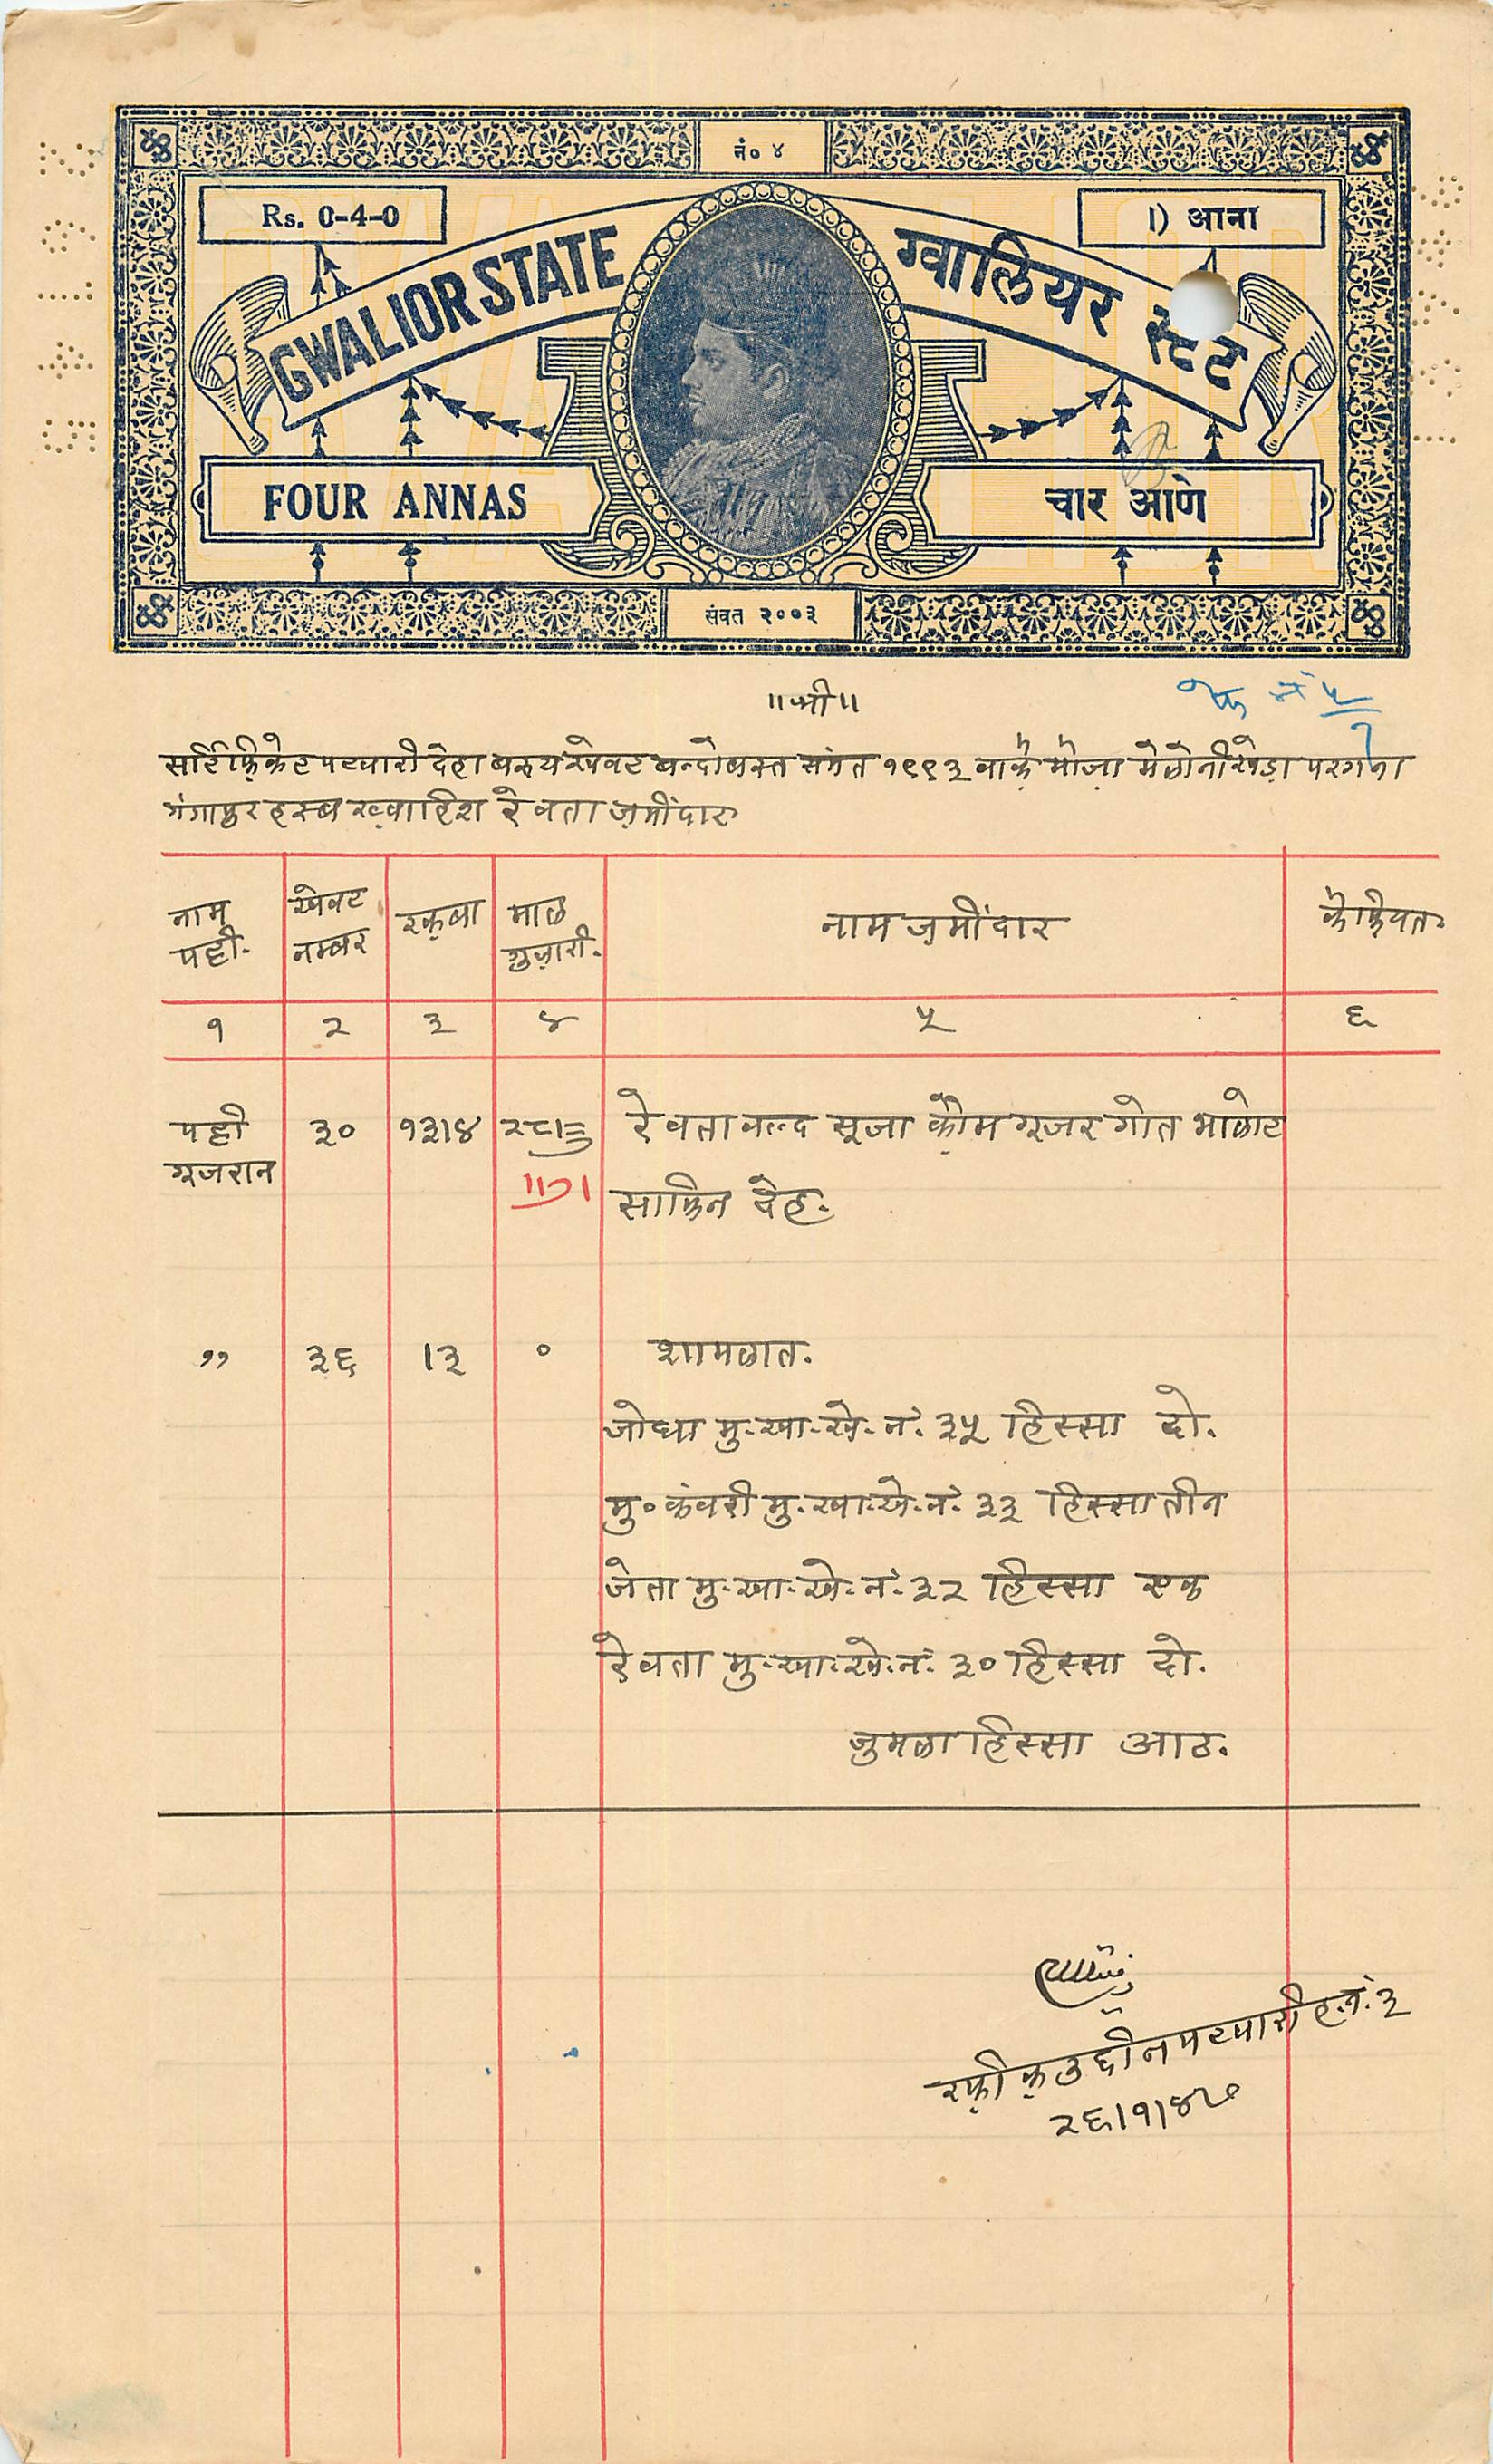 नं० ४
Rs. 0-4-0
।) आना
GWALIOR STATE
ग्वालियर स्टेट
FOUR ANNAS
चार आणे
संवत २००३
॥ श्री ॥
सर्टिफ़िकेट पटवारी देहा बरुय खेवट बन्दोबस्त संमत १९९३ वाक़ै मौज़ा मेलोनीखेड़ा परगना
गंगापुर हस्ब ख़्वाहिश रेवता ज़मींदार
नाम पट्टी.
खेवट नम्बर
रक़बा
माल गुज़ारी.
नाम ज़मींदार
कैफ़ियत.
१ २ ३ ४ ५ ६
पट्टी गूजरान ३० १३।४ रेवता वल्द सूजा क़ौम गूजर गोत भालोट
साकिन देह.
,, ३६ ।३ ० शामलात.
जोधा मु. खा. खे. नं. ३५ हिस्सा दो.
मु० कंवरी मु. खा. खे. नं. ३३ हिस्सा तीन
जेता मु. खा. खे. नं. ३२ हिस्सा एक
रेवता मु. खा. खे. नं. ३० हिस्सा दो.
जुमला हिस्सा आठ.
रफ़ीक़उद्दीन पटवारी ह. नं. ३
२६।१।४७